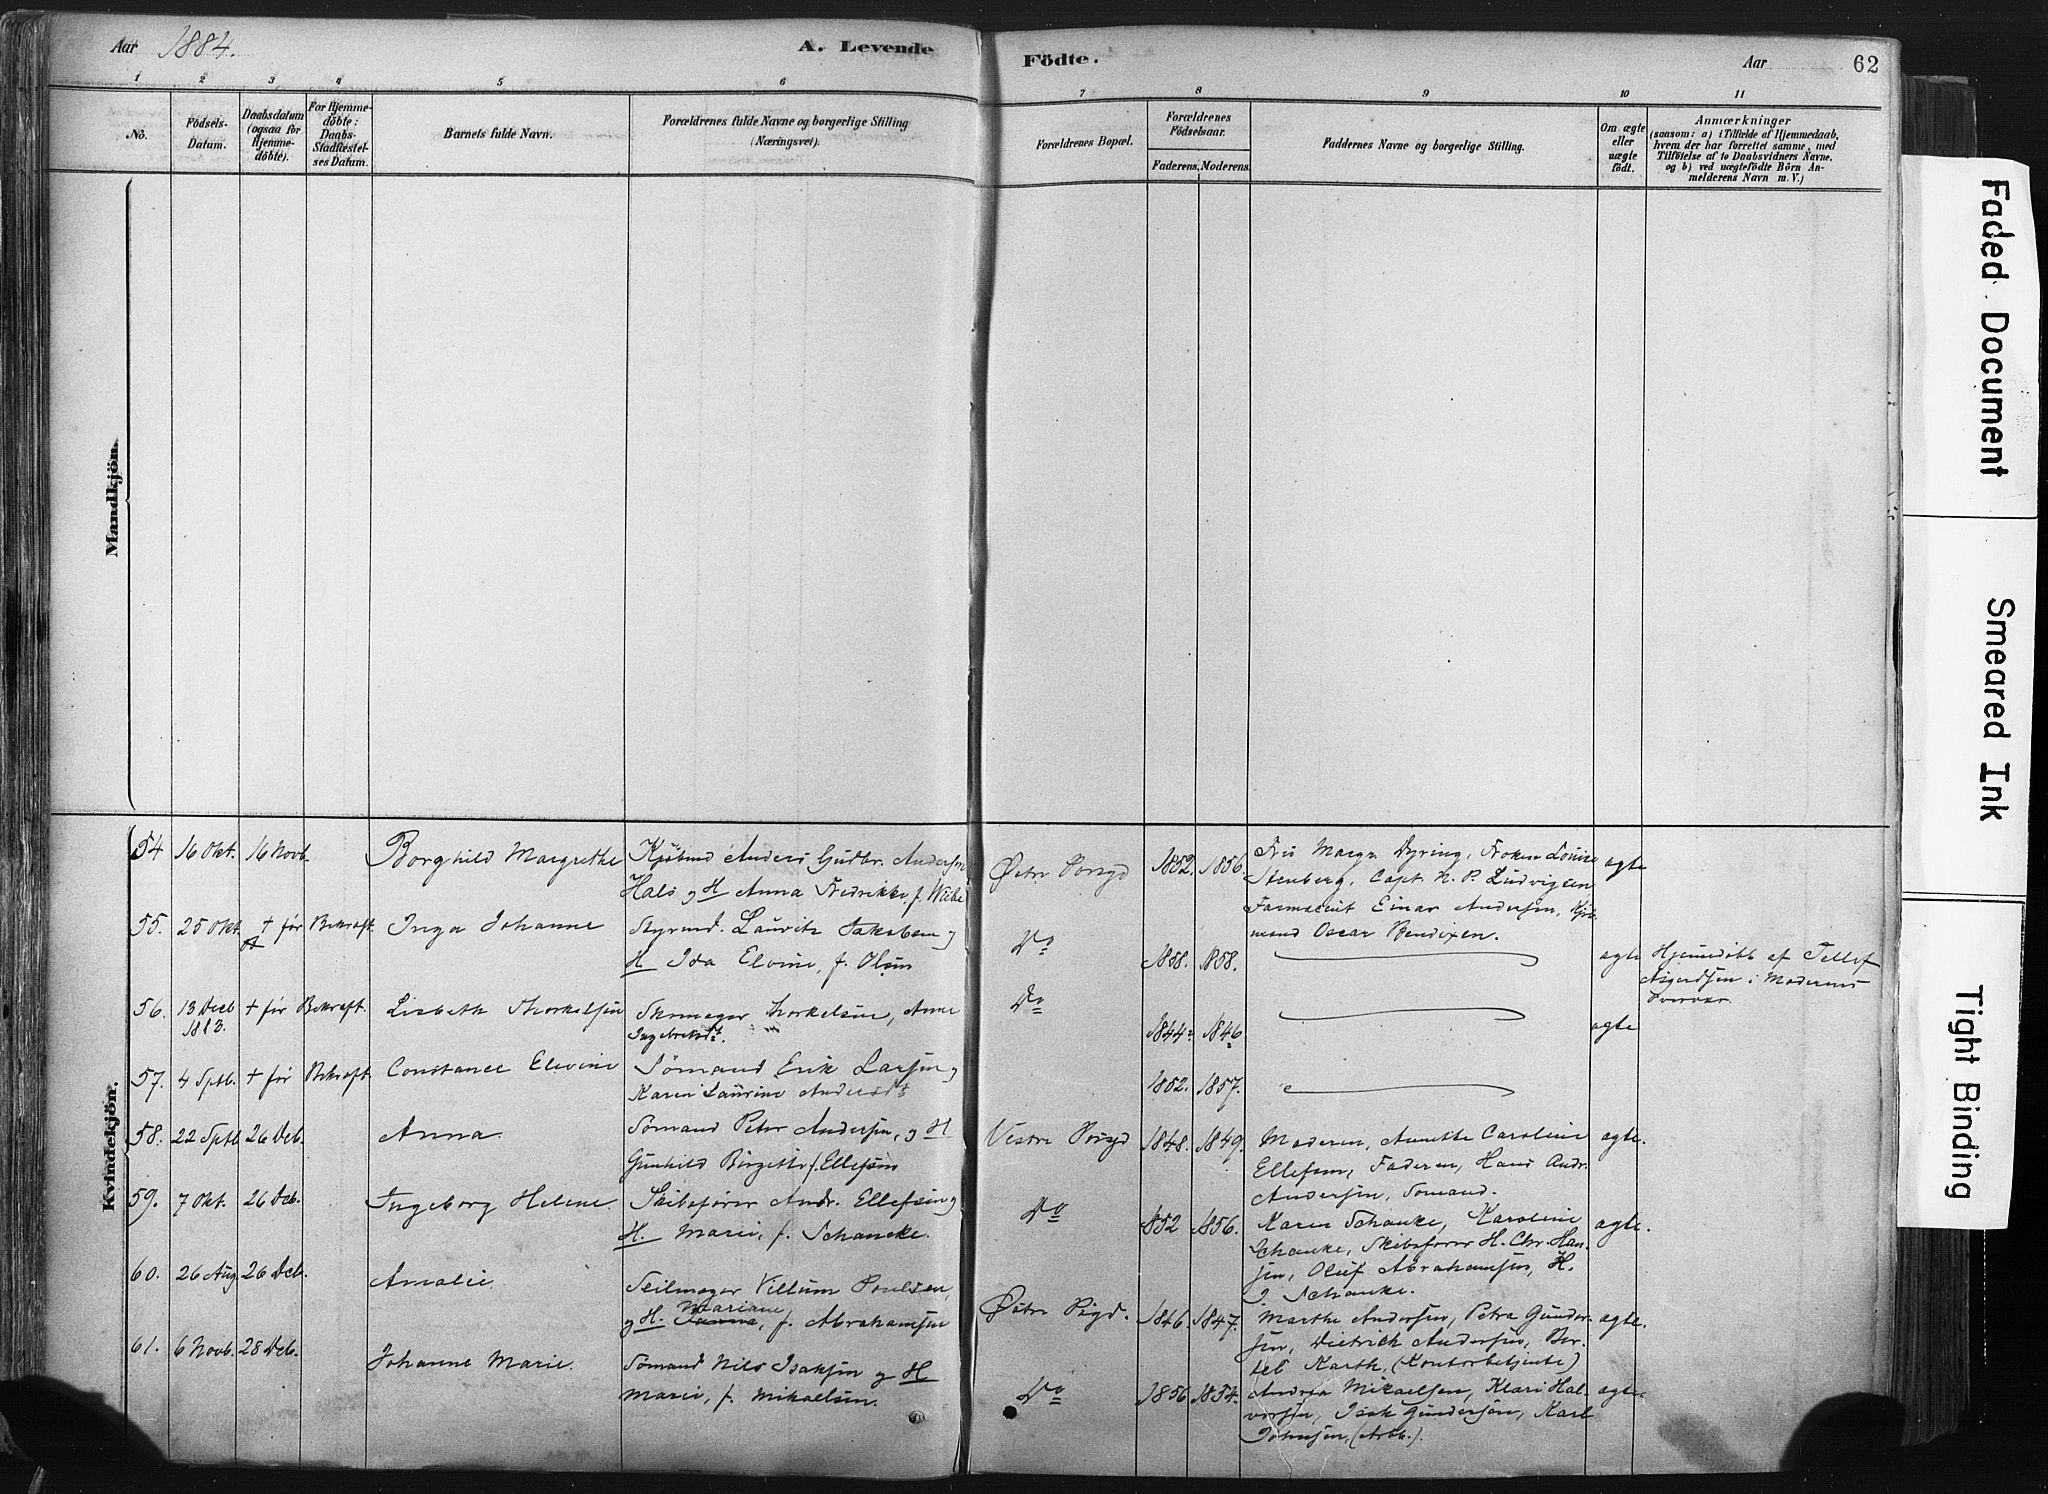 Aar 1884.
A. Levende
Födte.
Aar
62
1 2 3 4 5 6 7 8 9 10 11
No.
Födsels-
Datum.
Daabsdatum
(ogsaa for
Hjemme-
döbte).
For Hjemme-
döbte:
Daabs-
Stadfæstel-
ses Datum.
Barnets fulde Navn.
Forældrenes fulde Navne og borgerlige Stilling
(Næringsvei).
Forældrenes Bopæl.
Forældrenes
Födselsaar.
Faderens. Moderens.
Faddernes Navne og borgerlige Stilling.
Om ægte
eller
uægte
födt.
Anmærkninger
(saasom: a) i Tilfælde af Hjemmedaab,
hvem der har forrettet samme, med
Tilföielse af to Daabsvidners Navne,
og b) ved uægtefödte Börn An-
melderens Navn m. V.)
Mandkjön.
Kvindekjön.
54 16 Okt. 16 Novb. Borghild Margrethe
Kjöbmd Anders Gudbr. Andersen
Hals og H Anna Fredrikke, f. Wiibe
Østre 1852. 1856.
Fru Margr. Dyring, Frøken Louise
Stenberg, Capt. N. P. Ludvigsen
Farmaceut Einar Andersen, Kjöb-
mand Oscar Bendixen.
ægte
55. 25 Okt. + før Bekræft. Inga Johanne
Styrmd. Lauritz Jakobsen og
H Ida Elvine, f. Olsen
Do 1858. 1858.
ægte Hjemmedöbt af Tellef
Asgerdsen i Moderens
Overvær.
56. 13 Decb 1883. + før Bekræft. Lisbeth Thorkelsen
Skomager Thorkelsen, Anne
Ingebretsdt.
Do 1844 1846 ægte
57. 4 Sptb. + før Bekræft. Constance Elevine
Sömand Erik Larsen og
Karen Laurine Andersdt
1852. 1857.
58. 22 Sptb 26 Deb. Anna.
Sömand Peter Andersen, og H
Gunhild Birgette f. Ellefsen
Vestre 1848. 1849.
Moderen, Annette Caroline
Ellefsen, Faderen, Hans Andr.
Andersen, Sömand.
ægte.
59. 7 Okt. 26 Deb. Ingeborg Helene.
Skibsfører Andr. Ellefsen og
H. Marie, f. Schancke.
Do 1852 1856.
Karen Schanke, Karoline
Schanke, Skibsfører H. Chr. Han-
sen, Oluf Abrahamsen, H.
J. Schanke.
ægte.
60. 26 Aug. 26 Deb. Amalie
Seilmager Villum Poulsen,
og H. Mariane, f. Abrahamsen
Østre 1846. 1847.
Marthe Andersen, Petra Gunder-
sen, Dietrich Andersen, Ber-
tel Karth, (Kontorbetjente)
ægte.
61. 6 Novb. 28 Deb. Johanne Marie.
Sömand Nils Isaksen og H
Marie, f. Mikaelsen.
Do 1856 1854.
Andrea Mikaelsen, Klara Hal-
vorsen, Isak Gundersen, Karl
Johnsen, (Arbb.).
ægte
Faded Document
Smeared Ink
Tight Binding